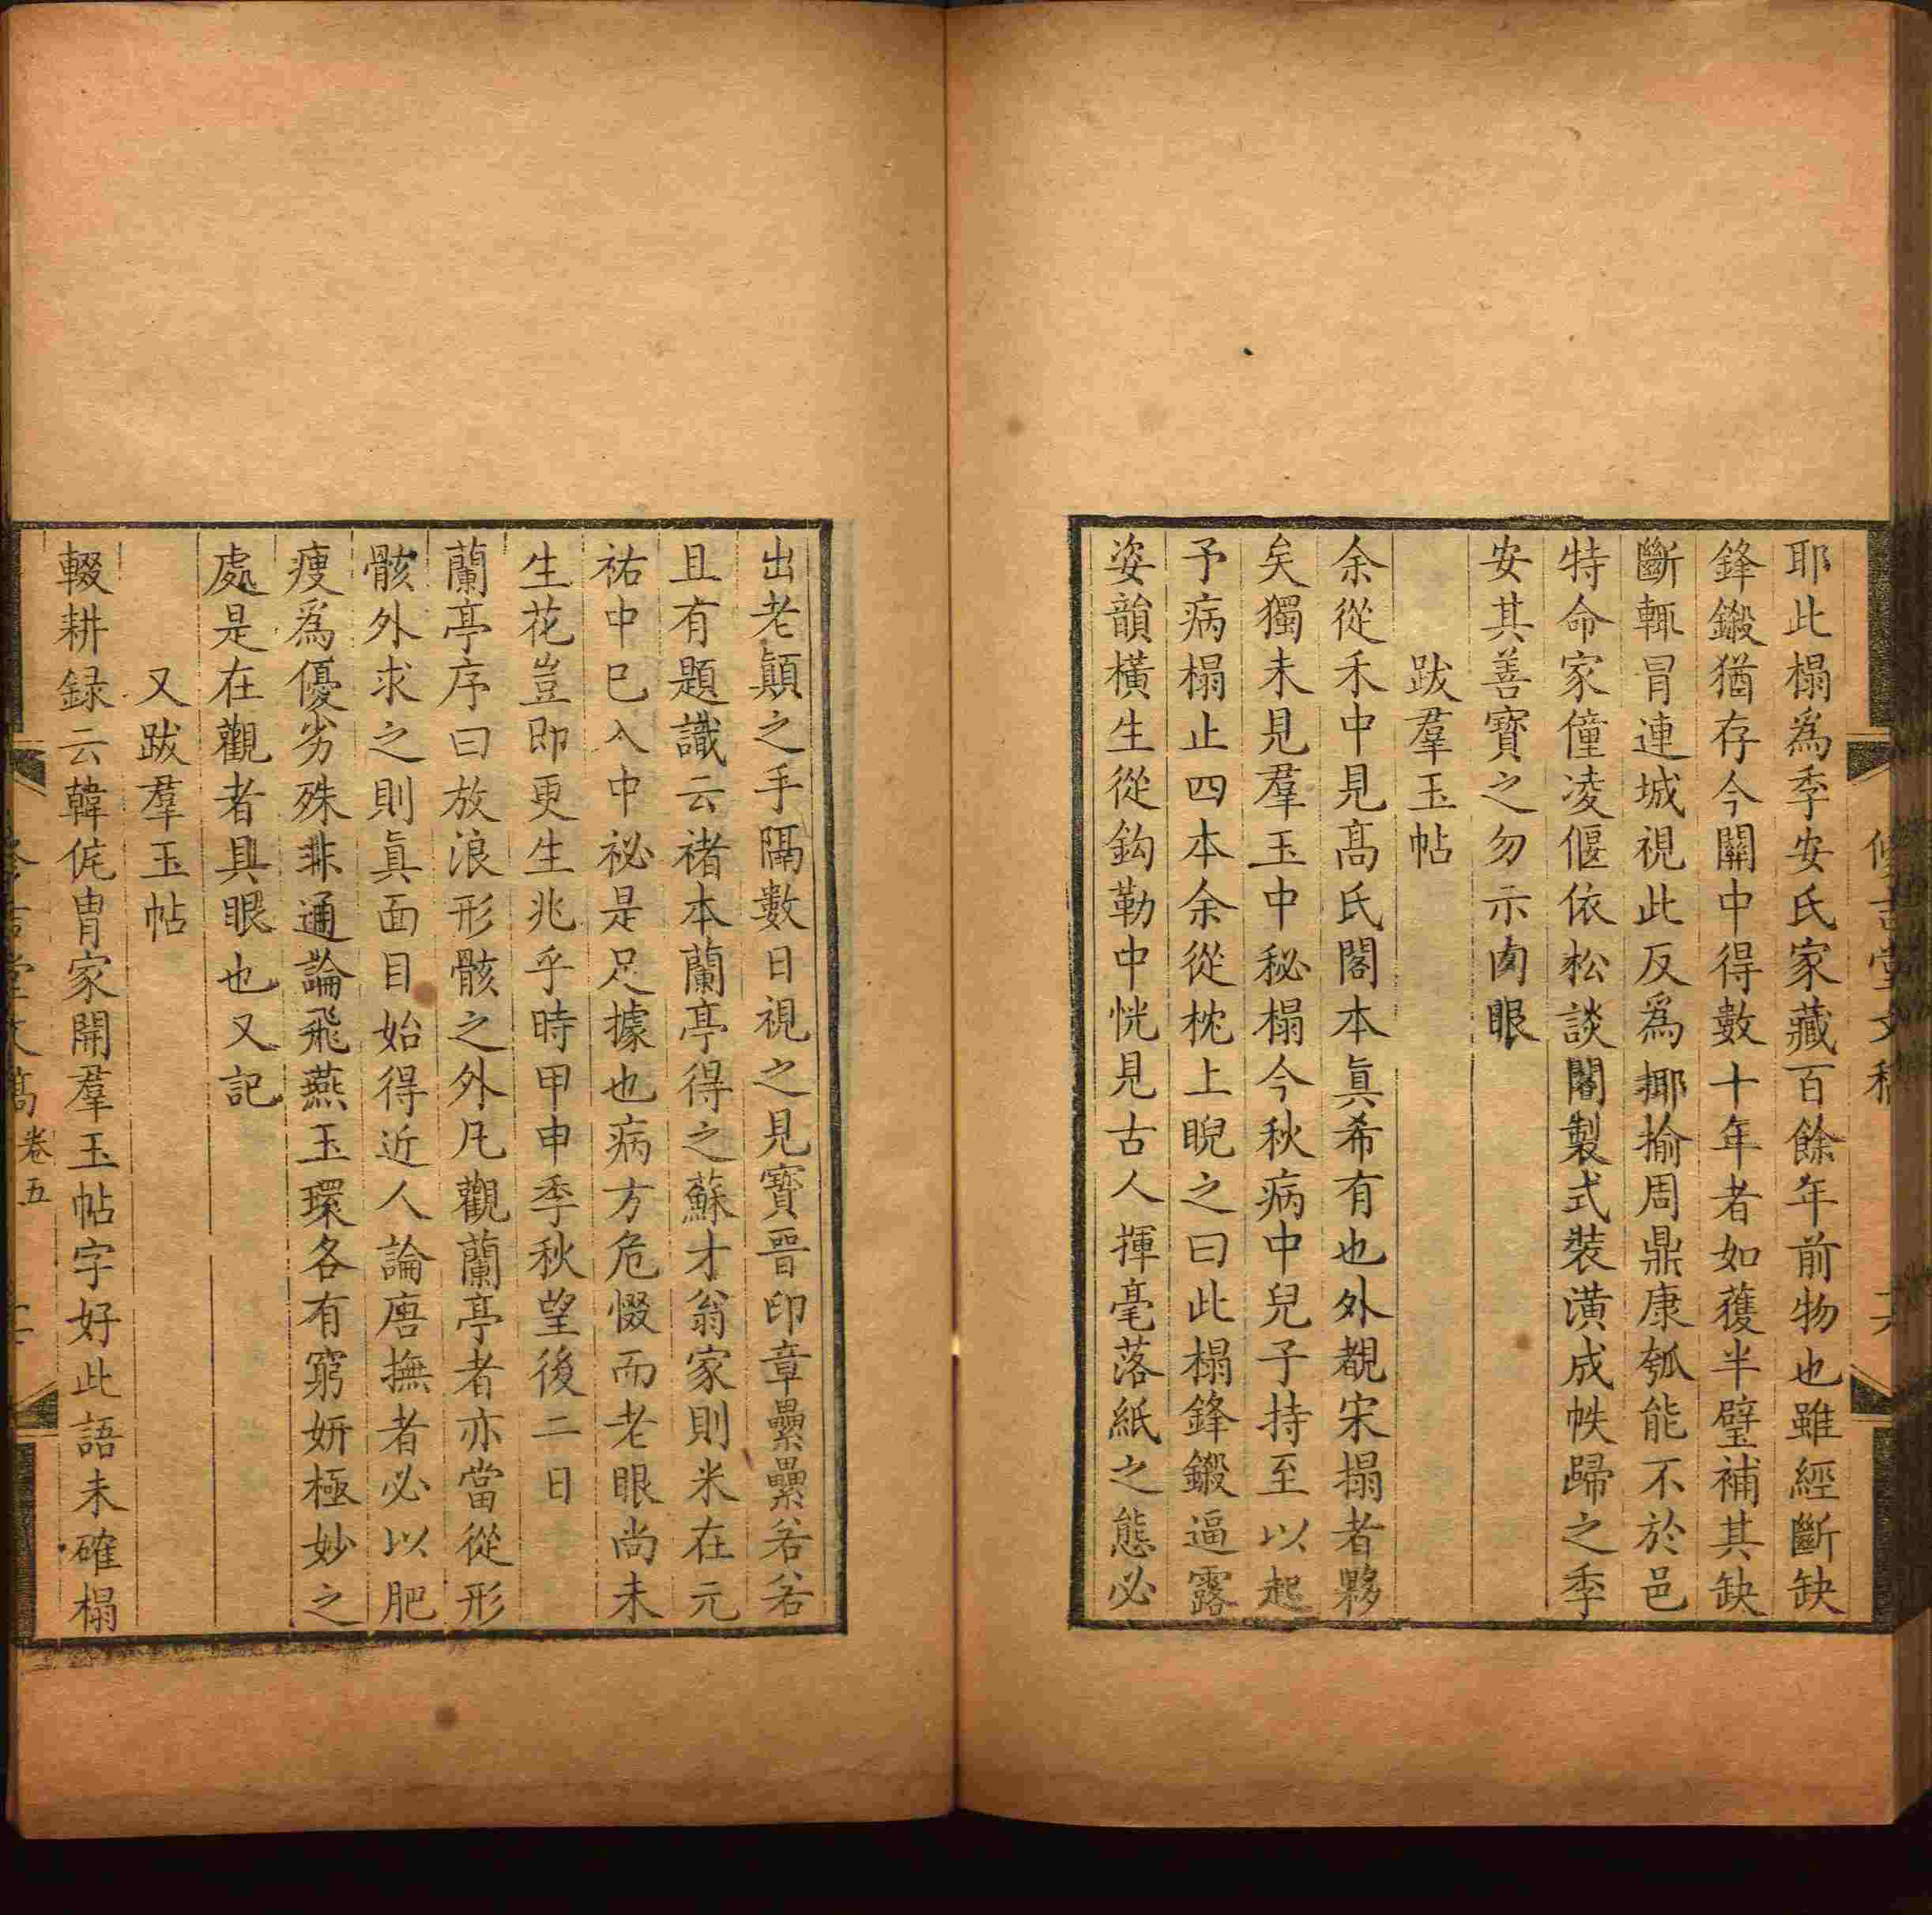 耶此榻爲季安氏家藏百餘年前物也雖經斷缺
鋒鎩猶存今關中得數十年者如獲半璧補其缺
斷輒冒連城視此反爲揶揄周鼎康瓠能不於邑
特命家僮凌偃依松談閣製式裝潢成帙歸之季
安其善寶之勿示肉眼
跋羣玉帖
余從禾中見高氏閣本眞希有也外覩宋搨者夥
矣獨未見羣玉中秘榻今秋病中兒子持至以起
予病榻止四本余從枕上睨之曰此榻鋒鎩逼露
姿韻橫生從鈎勒中恍見古人揮毫落紙之態必
出老顛之手隔數日視之見寶晉印章纍纍若若
且有題識云褚本蘭亭得之蘇才翁家則米在元
祐中巳入中祕是足據也病方危惙而老眼尚未
生花豈即更生兆乎時甲申季秋望後二日
蘭亭序曰放浪形骸之外凡觀蘭亭者亦當從形
骸外求之則眞面目始得近人論唐撫者必以肥
瘦爲優劣殊非通論飛燕玉環各有窮妍極妙之
處是在觀者具眼也又記
又跋羣玉帖
輟耕録云韓侂冑家開羣玉帖字好此語未確榻
卷五